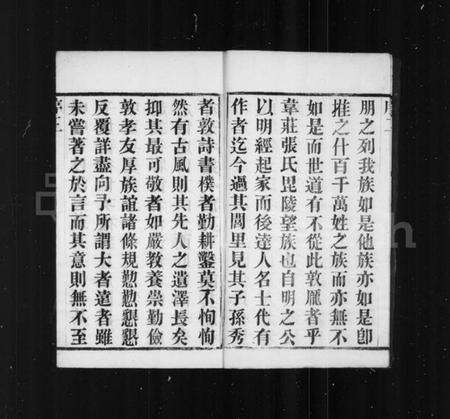 序二
朋之列我族如是他族亦如是卽
推之什百千萬姓之族而亦無不
如是而世道有不從此敦龐者乎
韋莊張氏毘陵望族也自明之公
以明經起家而後達人名士代有
作者迄今過其閭里見其子孫秀
者敦詩書樸者勤耕鑿莫不恂恂
然有古風則其先人之遺澤長矣
抑其最可敬者如嚴教養崇勤儉
敦孝友厚族誼諸條規懃懃懇懇
反覆詳盡向予所謂大者遠者雖
未嘗著之於言而其意則無不至
序三